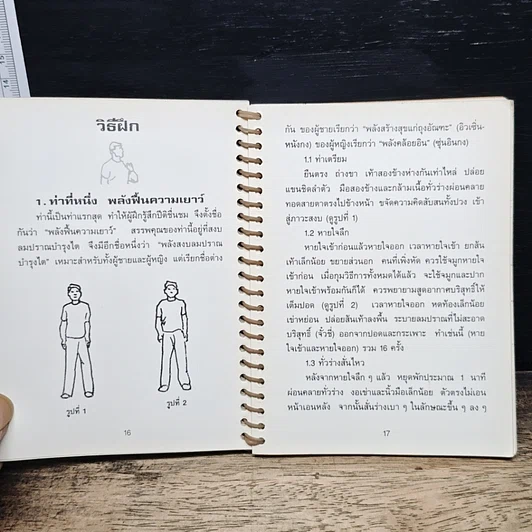 วิธีฝึก
1. ท่าที่หนึ่ง พลังฟื้นความเยาว์
ท่านี้เป็นท่าแรกสุด ทำให้ผู้ฝึกรู้สึกปีติชื่นชม จึงตั้งชื่อ
กันว่า "พลังฟื้นความเยาว์" สรรพคุณของท่านี้อยู่ที่สงบ
ลมปราณบำรุงไต จึงมีอีกชื่อหนึ่งว่า "พลังสงบลมปราณ
บำรุงไต" เหมาะสำหรับทั้งผู้ชายและผู้หญิง แต่เรียกชื่อต่าง
รูปที่ 1
รูปที่ 2
16
กัน ของผู้ชายเรียกว่า "พลังสร้างสุขแก่ถุงอัณฑะ" (อิวเซิ่น-
หนังกง) ของผู้หญิงเรียกว่า "พลังคล้อยอิน" (ซุ่นอินกง)
1.1 ท่าเตรียม
ยืนตรง ถ่างขา เท้าสองข้างห่างกันเท่าไหล่ ปล่อย
แขนชิดลำตัว มือสองข้างและกล้ามเนื้อทั่วร่างผ่อนคลาย
ทอดสายตาตรงไปข้างหน้า ขจัดความคิดสับสนทั้งปวง เข้า
สู่ภาวะสงบ (ดูรูปที่ 1)
1.2 หายใจลึก
หายใจเข้าก่อนแล้วหายใจออก เวลาหายใจเข้า ยกส้น
เท้าเล็กน้อย ขยายส่วนอก คนที่เพิ่งหัด ควรใช้จมูกหายใจ
เข้าก่อน เมื่อกุมวิธีการทั้งหมดได้แล้ว จะใช้จมูกและปาก
หายใจเข้าพร้อมกันก็ได้ ควรพยายามสูดอากาศบริสุทธิ์ให้
เต็มปอด (ดูรูปที่ 2) เวลาหายใจออก หดท้องเล็กน้อย
เข่าหย่อน ปล่อยส้นเท้าลงพื้น ระบายลมปราณที่ไม่สะอาด
บริสุทธิ์ (จั๋วชี่) ออกจากปอดและกระเพาะ ทำเช่นนี้ (หาย
ใจเข้าและหายใจออก) รวม 16 ครั้ง
1.3 ทั่วร่างสั่นไหว
หลังจากหายใจลึก ๆ แล้ว หยุดพักประมาณ 1 นาที
ผ่อนคลายทั่วร่าง งอเข่าและนิ้วมือเล็กน้อย ตัวตรงไม่เอน
หน้าเอนหลัง จากนั้นสั่นร่างเบา ๆ ในลักษณะขึ้น ๆ ลง ๆ
17